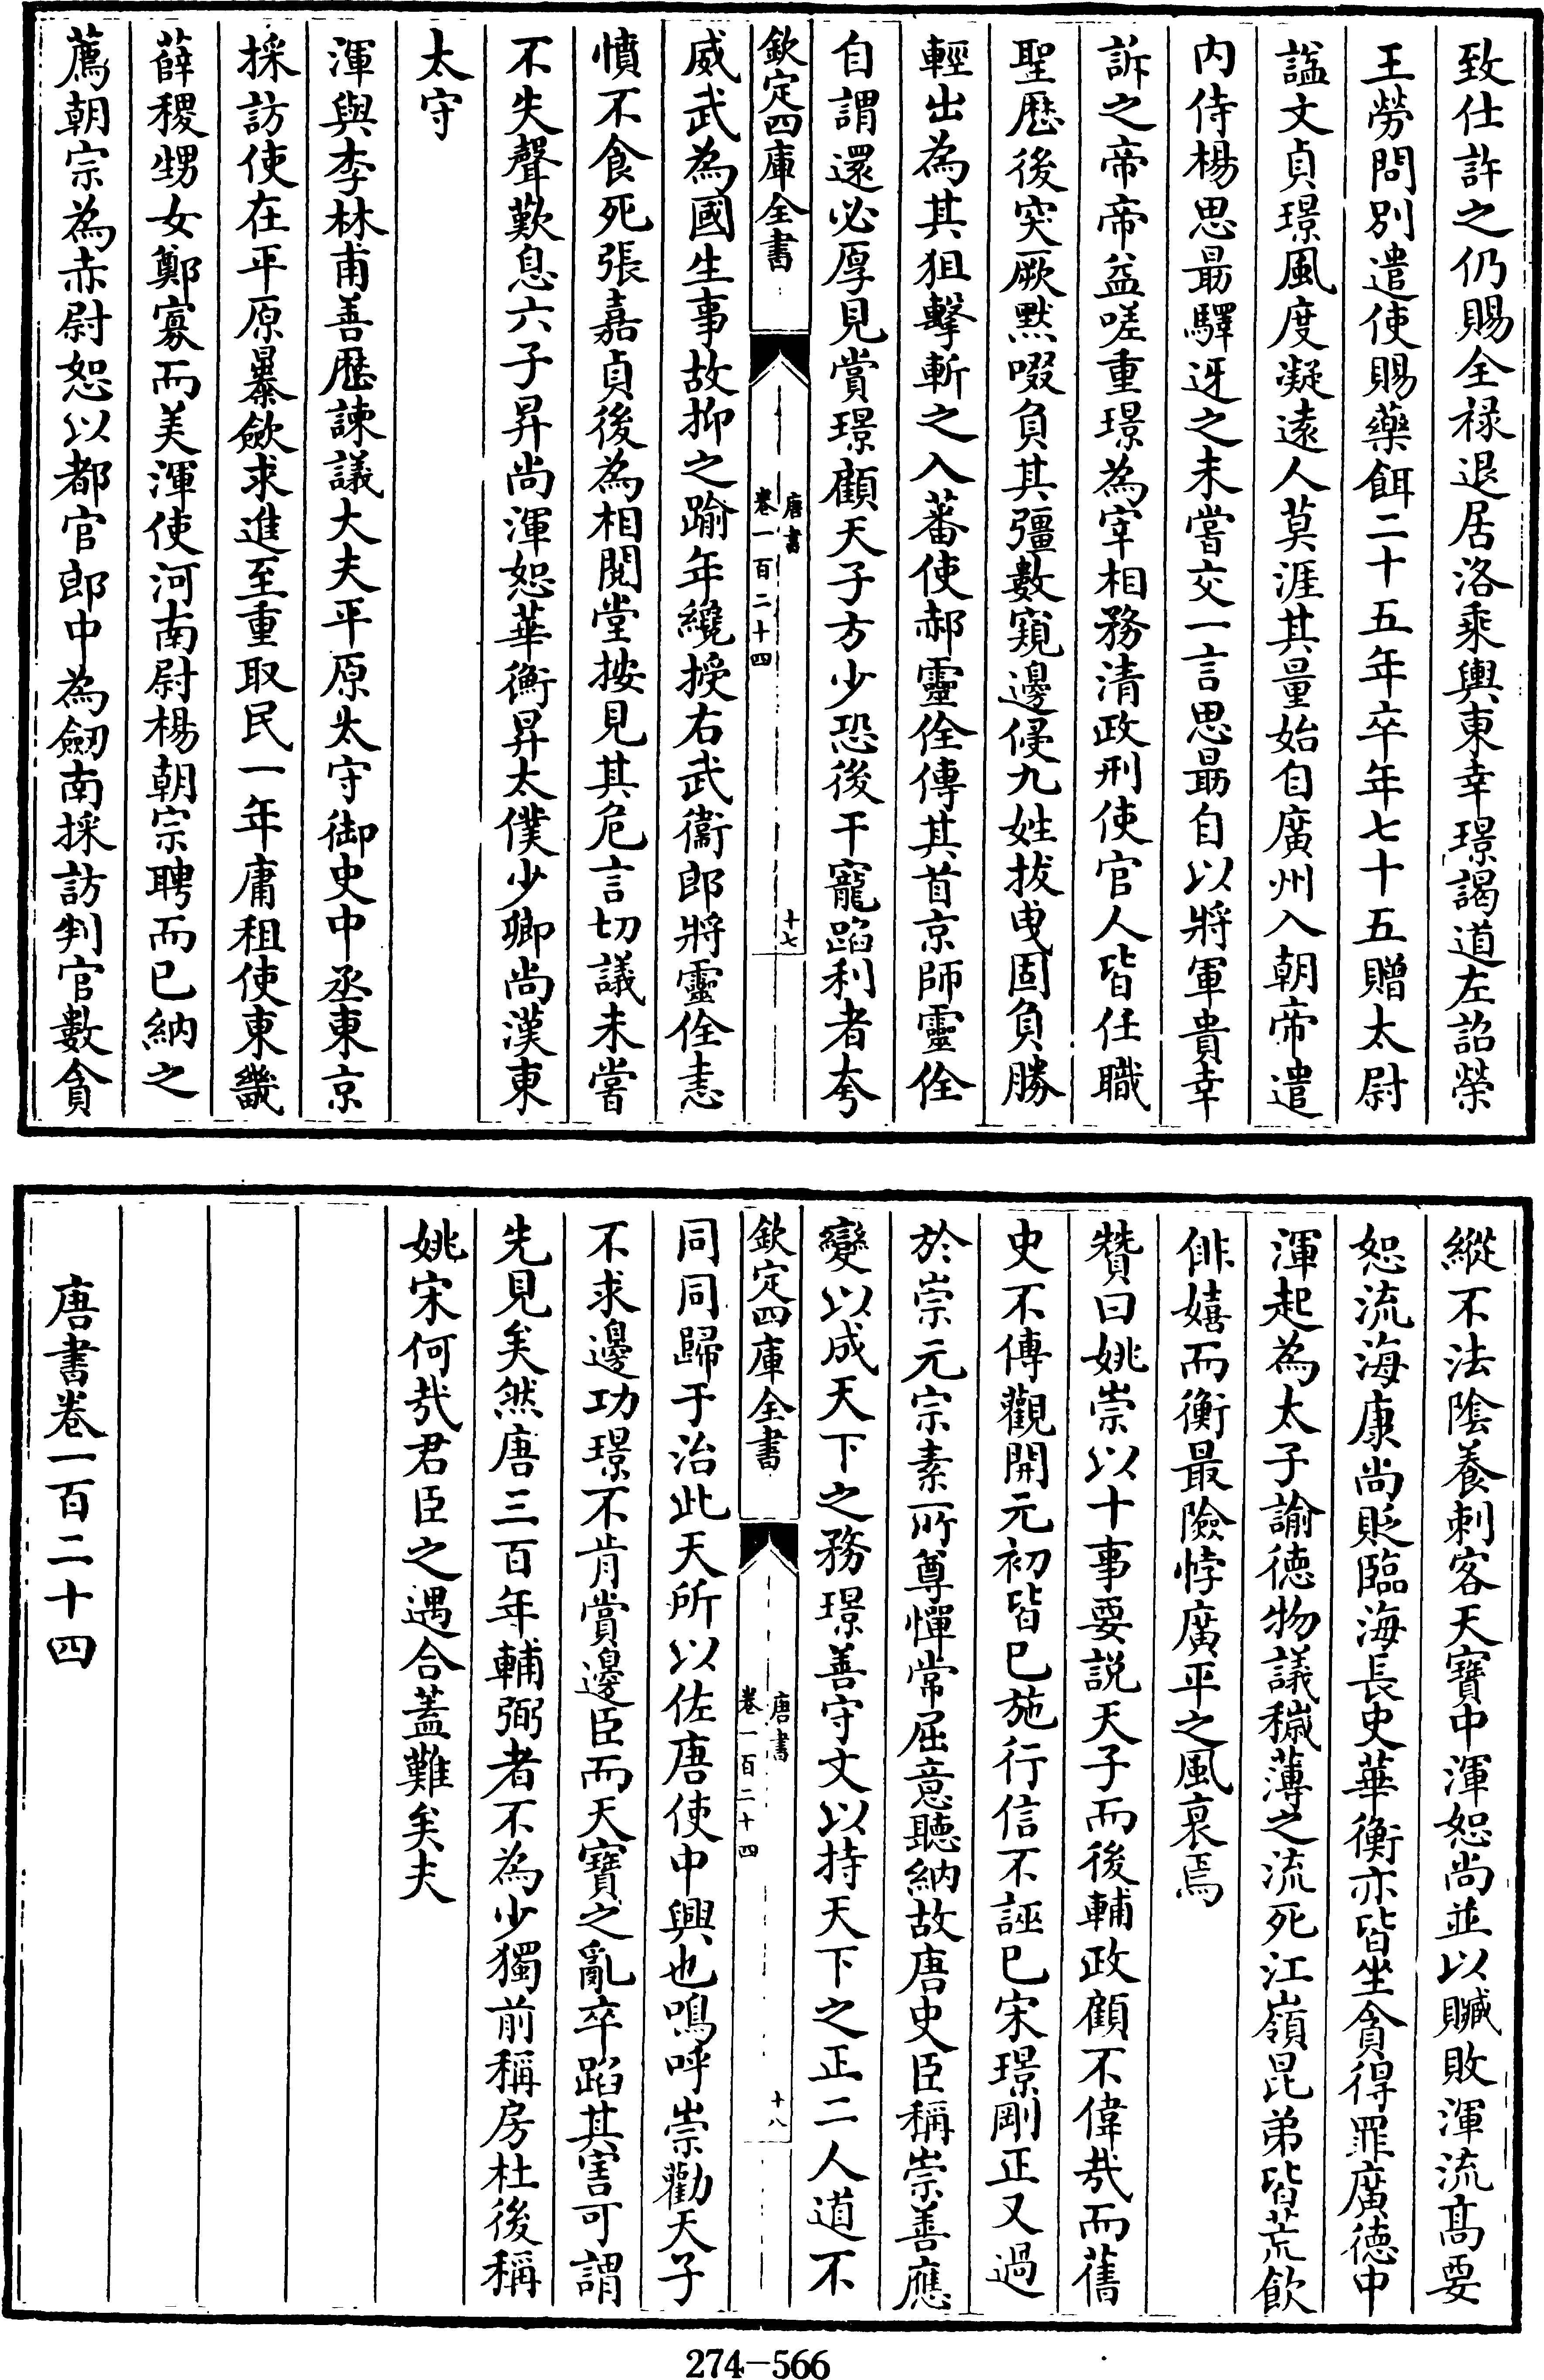 致仕許之仍賜全禄退居洛乘輿東幸璟謁道左詔榮
王勞問別遣使賜藥餌二十五年卒年七十五贈太尉
諡文貞璟風度凝遠人莫涯其量始自廣州入朝帝遣
内侍楊思朂驛迓之未嘗交一言思朂自以將軍貴幸
訴之帝帝益嗟重璟為宰相務清政刑使官人皆任職
聖歴後突厥黙啜負其彊數窺邊侵九姓拔曳固負勝
輕出為其狙擊斬之入蕃使郝靈佺傳其首京師靈佺
自謂還必厚見賞璟顧天子方少恐後干寵蹈利者夸
欽定四庫全書
唐書
卷一百二十四
十七
威武為國生事故抑之踰年纔授右武衞郎將靈佺恚
憤不食死張嘉貞後為相閲堂按見其危言切議未嘗
不失聲歎息六子昇尚渾恕華衡昇太僕少卿尚漢東
太守
渾與李林甫善歴諫議大夫平原太守御史中丞東京
採訪使在平原暴斂求進至重取民一年庸租使東畿
薛稷甥女鄭寡而美渾使河南尉楊朝宗聘而已納之
薦朝宗為赤尉恕以都官郎中為劒南採訪判官數貪
縱不法隂養刺客天寶中渾恕尚並以贓敗渾流髙要
恕流海康尚貶臨海長史華衡亦皆坐貪得罪廣德中
渾起為太子諭徳物議穢薄之流死江嶺昆弟皆荒飲
俳嬉而衡最險悖廣平之風衰焉
贊曰姚崇以十事要説天子而後輔政顧不偉哉而舊
史不傳觀開元初皆已施行信不誣已宋璟剛正又過
於崇元宗素所尊憚常屈意聽納故唐史臣稱崇善應
變以成天下之務璟善守文以持天下之正二人道不
欽定四庫全書
唐書
卷一百二十四
十八
同同歸于治此天所以佐唐使中興也嗚呼崇勸天子
不求邊功璟不肯賞邊臣而天寶之亂卒蹈其害可謂
先見矣然唐三百年輔弼者不為少獨前稱房杜後稱
姚宋何哉君臣之遇合蓋難矣夫
唐書卷一百二十四
274-566